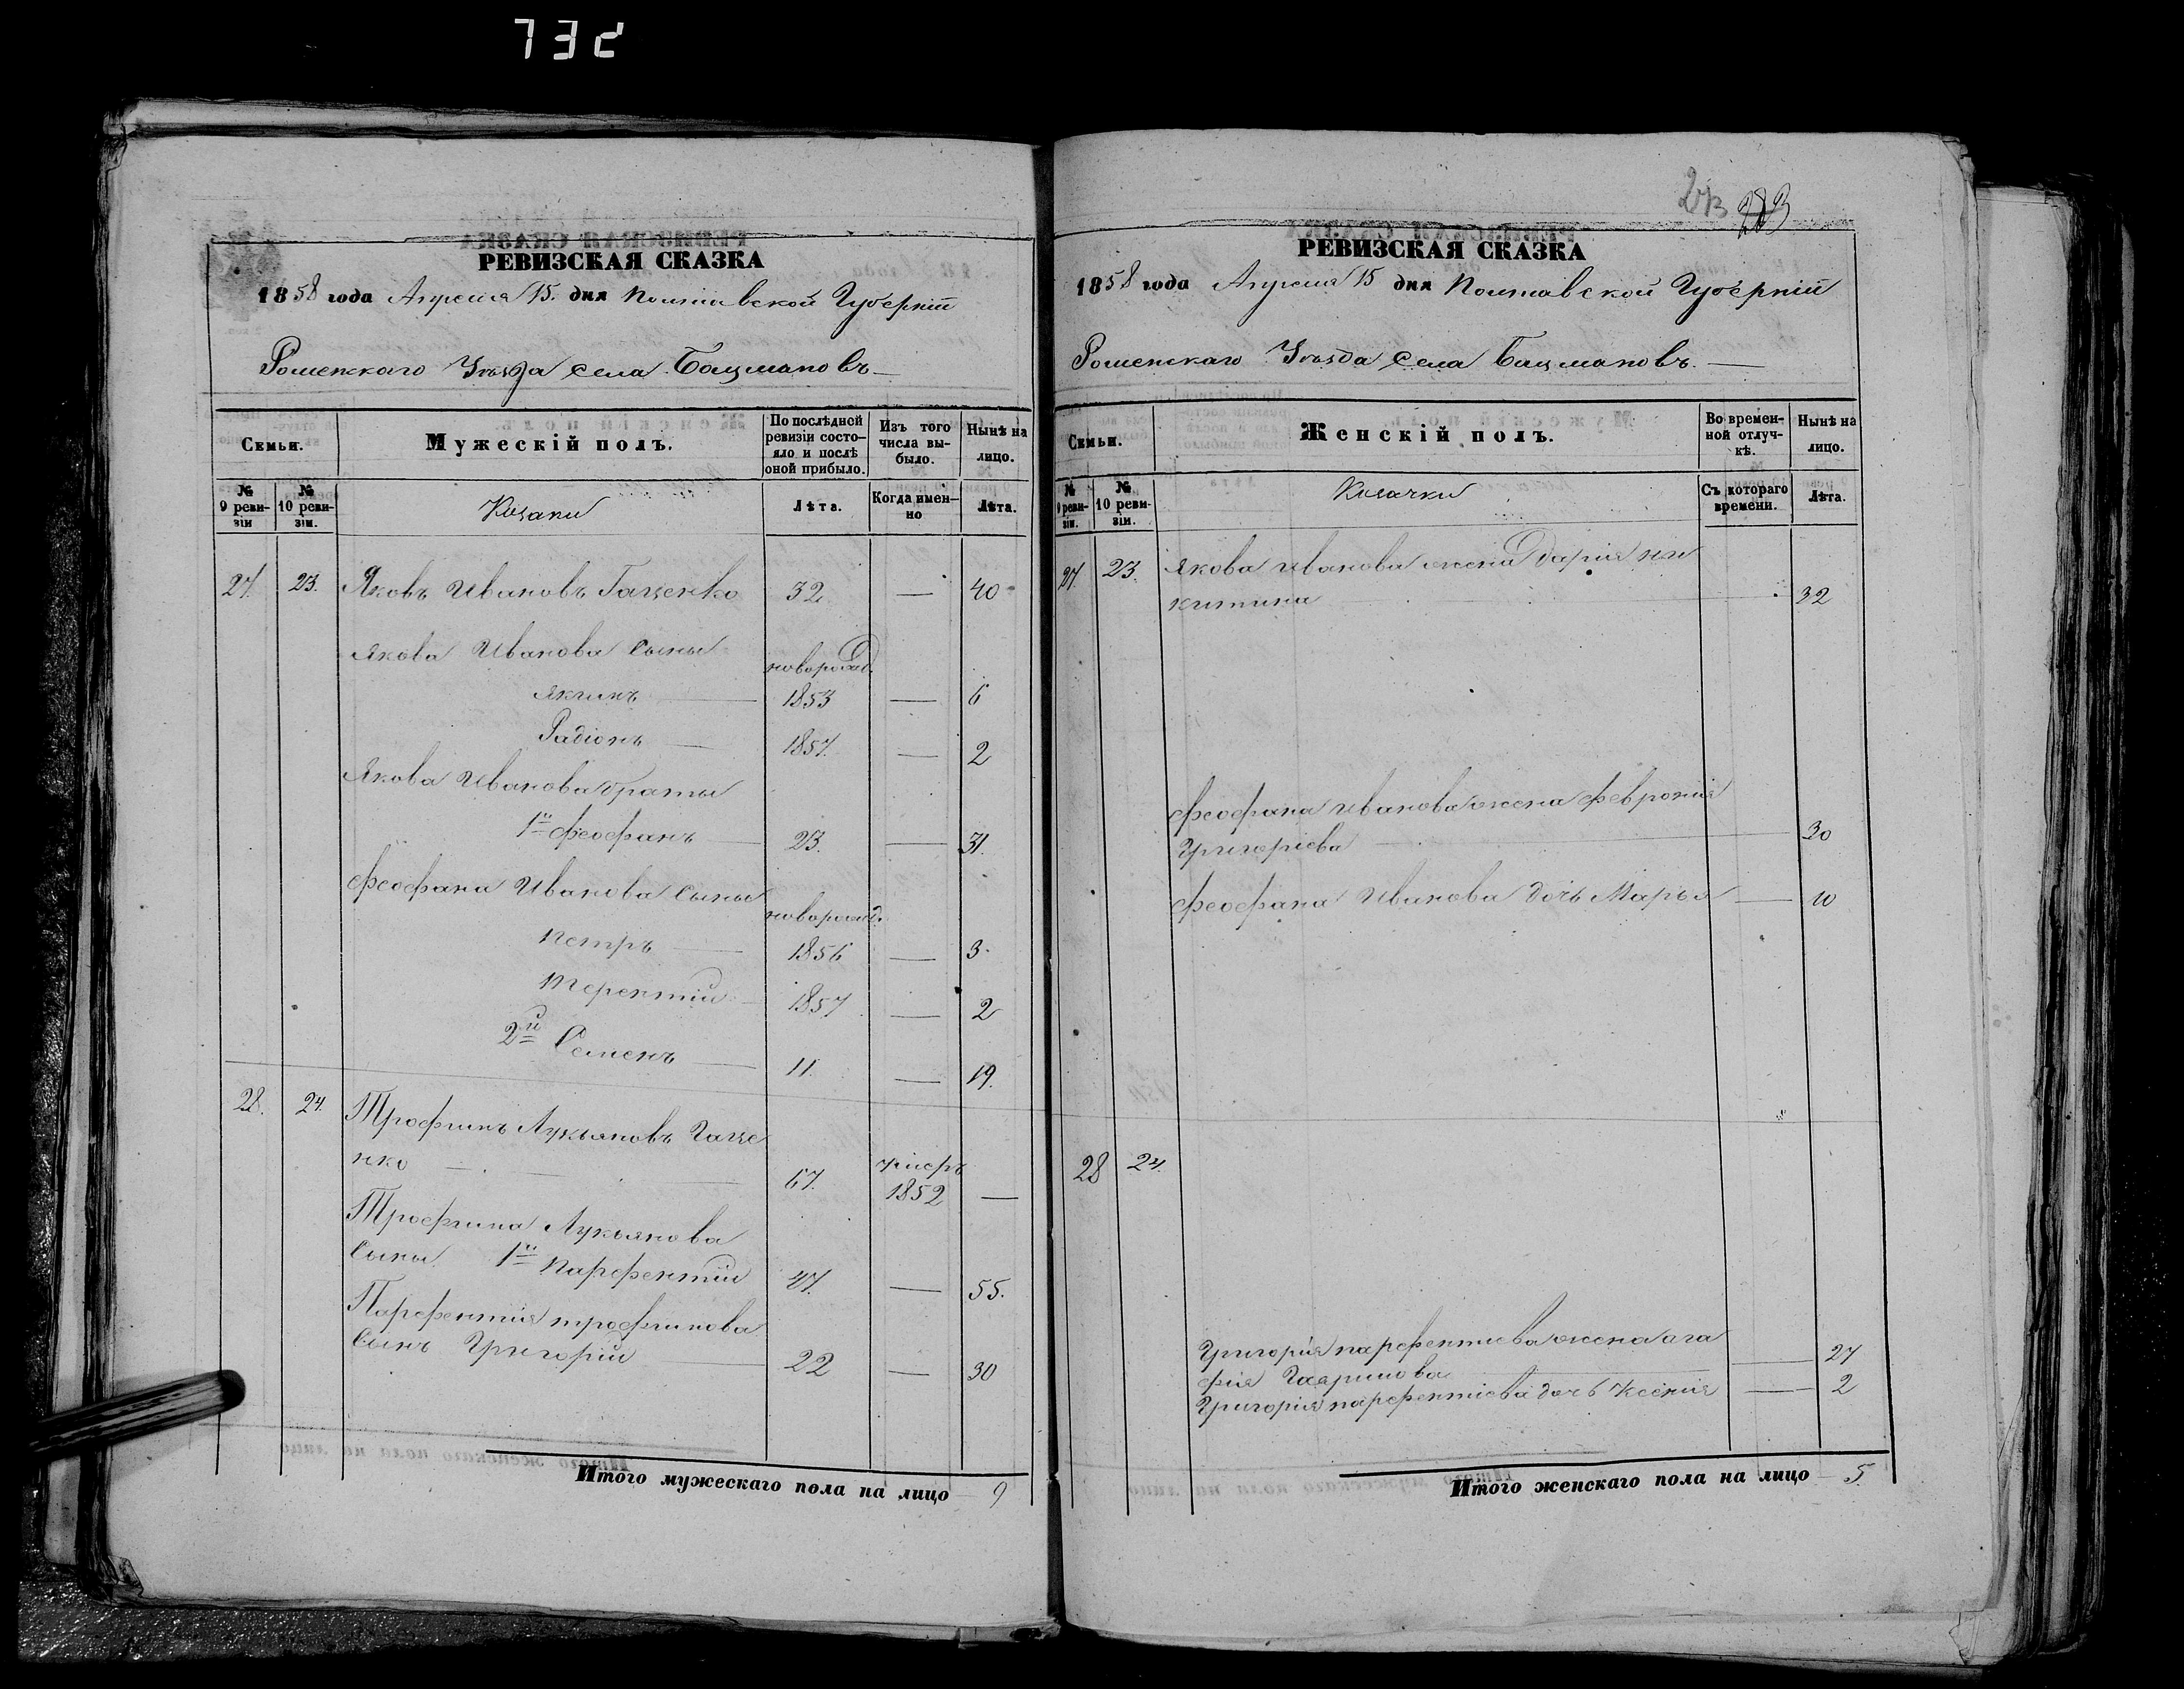 732
РЕВИЗСКАЯ СКАЗКА
1858 года Апреля 15. дня Полтавской Губерніи
Роменскаго Уѣзда села Бацмановъ
Семьи.
Мужескій полъ.
По послѣдней ревизіи состояло и послѣ оной прибыло.
Изъ того числа выбыло.
Нынѣ на лицо.
№ 9 ревизіи
№ 10 ревизіи.
Козаки
Лѣта.
Когда именно
Лѣта.
27. 23. Яковъ Ивановъ Гаценко 32 — 40
Якова Иванова сыны новорожд.
Якимъ 1853 — 6
Радіонъ 1857. — 2
Якова Иванова браты
1й Феофанъ 23. — 31.
Феофана Иванова сыны новорожд.
Петръ 1856 — 3.
Терентій 1857 — 2
2й Семенъ 11. — 19.
28. 24. Трофимъ Лукьяновъ Гаце
нко 67. умеръ 1852 —
Трофима Лукьянова
сыны 1й Парфентій 47. — 55.
Парфентія трофимова
сынъ Григорій 22 — 30
Итого мужескаго пола на лицо 9
273 283
РЕВИЗСКАЯ СКАЗКА
1858 года Апреля 15 дня Полтавской Губерніи
Роменскаго Уѣзда села Бацмановъ.
Семьи.
Женскій полъ.
Во временной отлучкѣ.
Нынѣ на лицо.
№ 9 ревизіи.
№ 10 ревизіи.
Козачки
Съ котораго времени.
Лѣта.
27. 23. Якова Иванова жена Дарія ни
китина 32
Феофана Иванова жена Февронія
Григоріева 30
Феофана Иванова дочь Марья — 10
28 24.
Григорія парфентиева жена ага
фія — 27
Григорія парфентіева дочь Ксенія — 2
Итого женскаго пола на лицо 5.